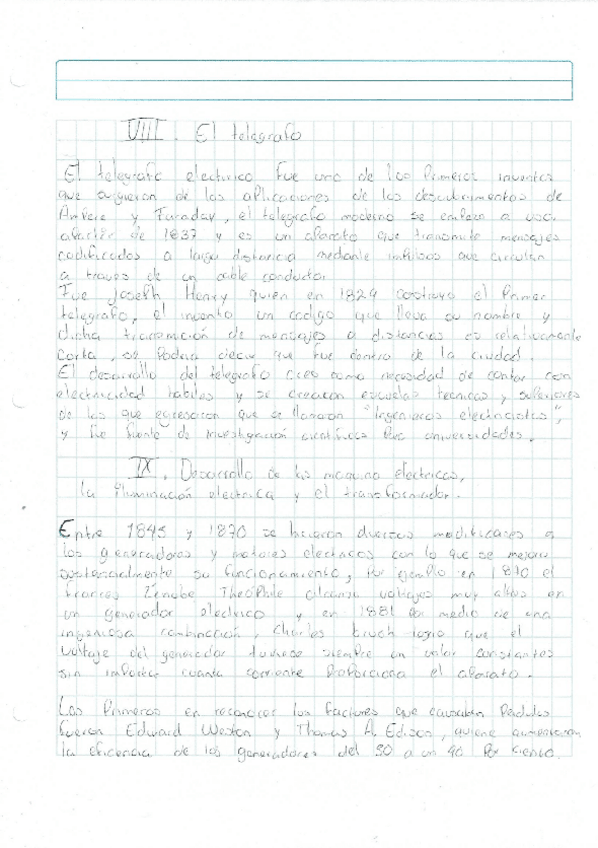 VIII. El telegrafo
El telegrafo electrico fue uno de los Primeros inventos
que surgieron de las aplicaciones de los descubrimentos de
Ampere y Faraday, el telegrafo moderno se empezo a usar
apartir de 1837 y es un aparato que transmite mensajes
codificados a larga distancia mediante impulsos que circulan
a traves de un cable conductor.
Fue Joseph Henry quien en 1829 costruyo el Primer
telegrafo, el invento un codigo que lleva su nombre y
dicha transmición de mensajes a distancias es relativamente
Corta, se Podria decir que fue dentro de la ciudad.
El desarrollo del telegrafo creo como necesidad de contar con
electricidad habiles y se crearon escuelas tecnicas y superiores
de las que egresaron que se llamaron "Ingenieros electricistas",
y fue fuente de investigación cientifica Para universidades.
IX. Desarrollo de las maquina electricas,
la iluminación electrica y el transformador.
Entre 1845 y 1870 se hicieron diversas modificaces a
los generadores y motores electricos con lo que se mejoro
sustancialmente su funcionamiento, Por ejemplo en 1870 el
frances Zénobe Théophile alcanzo voltajes muy altos en
un generador electrico y en 1881 Por medio de una
ingeniosa combinación, Charles Bruch logro que el
voltaje del generador tuviese siempre un valor constantes
sin importar cuanta corriente Proporciona el aparato.
Los Primeros en reconocer los factores que causaban Perdidas
fueron Edward Weston y Thomas A. Edison, quiene aumentaron
la eficencia de los generadores del 50 a un 90 Por ciento.